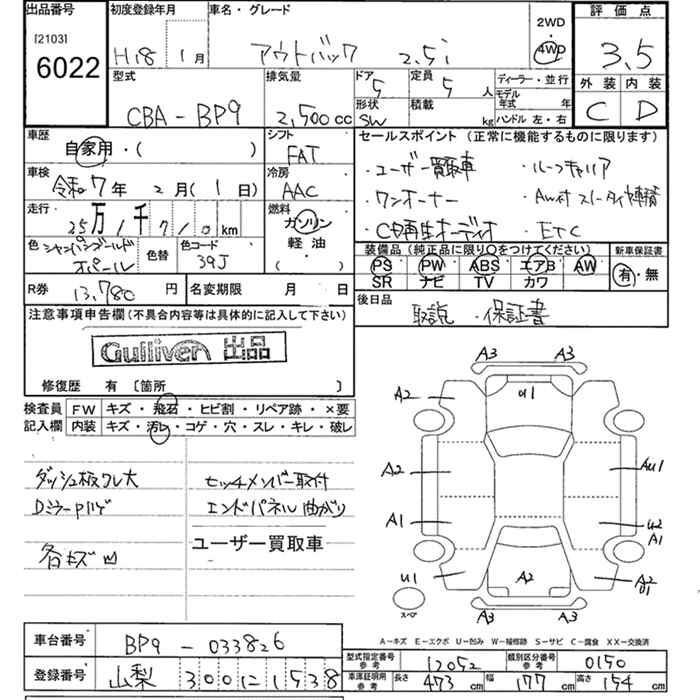 出品番号 初度登録年月 車名・グレード 2WD 評価点
[2103] H18 1月 アウトバック 2.5i 4WD 3.5
6022 型式 排気量 ドア 定員 ディーラー・並行 外装 内装
CBA-BP9 2,500cc 5 5人 モデル年式 年
形状 SW 積載 kg ハンドル 左・右 C D
車歴 シフト セールスポイント (正常に機能するものに限ります)
自家用・( ) FAT ・ユーザー買取車 ・ルーフキャリア
車検 冷房
令和7年2月(1日) AAC ・ワンオーナー
走行 燃料
25万1千710km ガソリン ・CD再生オーディオ ・ETC
色 シャンパンゴールドオパール 色替 色コード 39J 軽油 ( )
装備品 (純正品に限り○をつけてください) 新車保証書
PS PW ABS エアB AW 有・無
SR ナビ TV カワ
R券 13,780円 名変期限 月 日
後日品 取説・保証書
注意事項申告欄 (不具合内容等は具体的に記入して下さい)
Gulliver 出品
修復歴 有 [箇所 ]
検査員 FW キズ・飛石・ヒビ割・リペア跡・×要
記入欄 内装 キズ・汚レ・コゲ・穴・スレ・キレ・破レ
ダッシュ板ワレ大 ヒッチメンバー取付
Dミラー エンドパネル曲がり
各キズ凹 ユーザー買取車
A3 A3
A2 U1
A2 AU1
A1 U2 A1
U1 A2 A2 U1
スペア
A3 A3
A-キズ E-エクボ U-凹み W-補修跡 S-サビ C-腐食 XX-交換済
車台番号 BP9-033826
登録番号 山梨 300 に 1538
型式指定番号 参考 12052 類別区分番号 参考 0150
車庫証明用 参考 長さ 473cm 幅 177cm 高さ 154cm